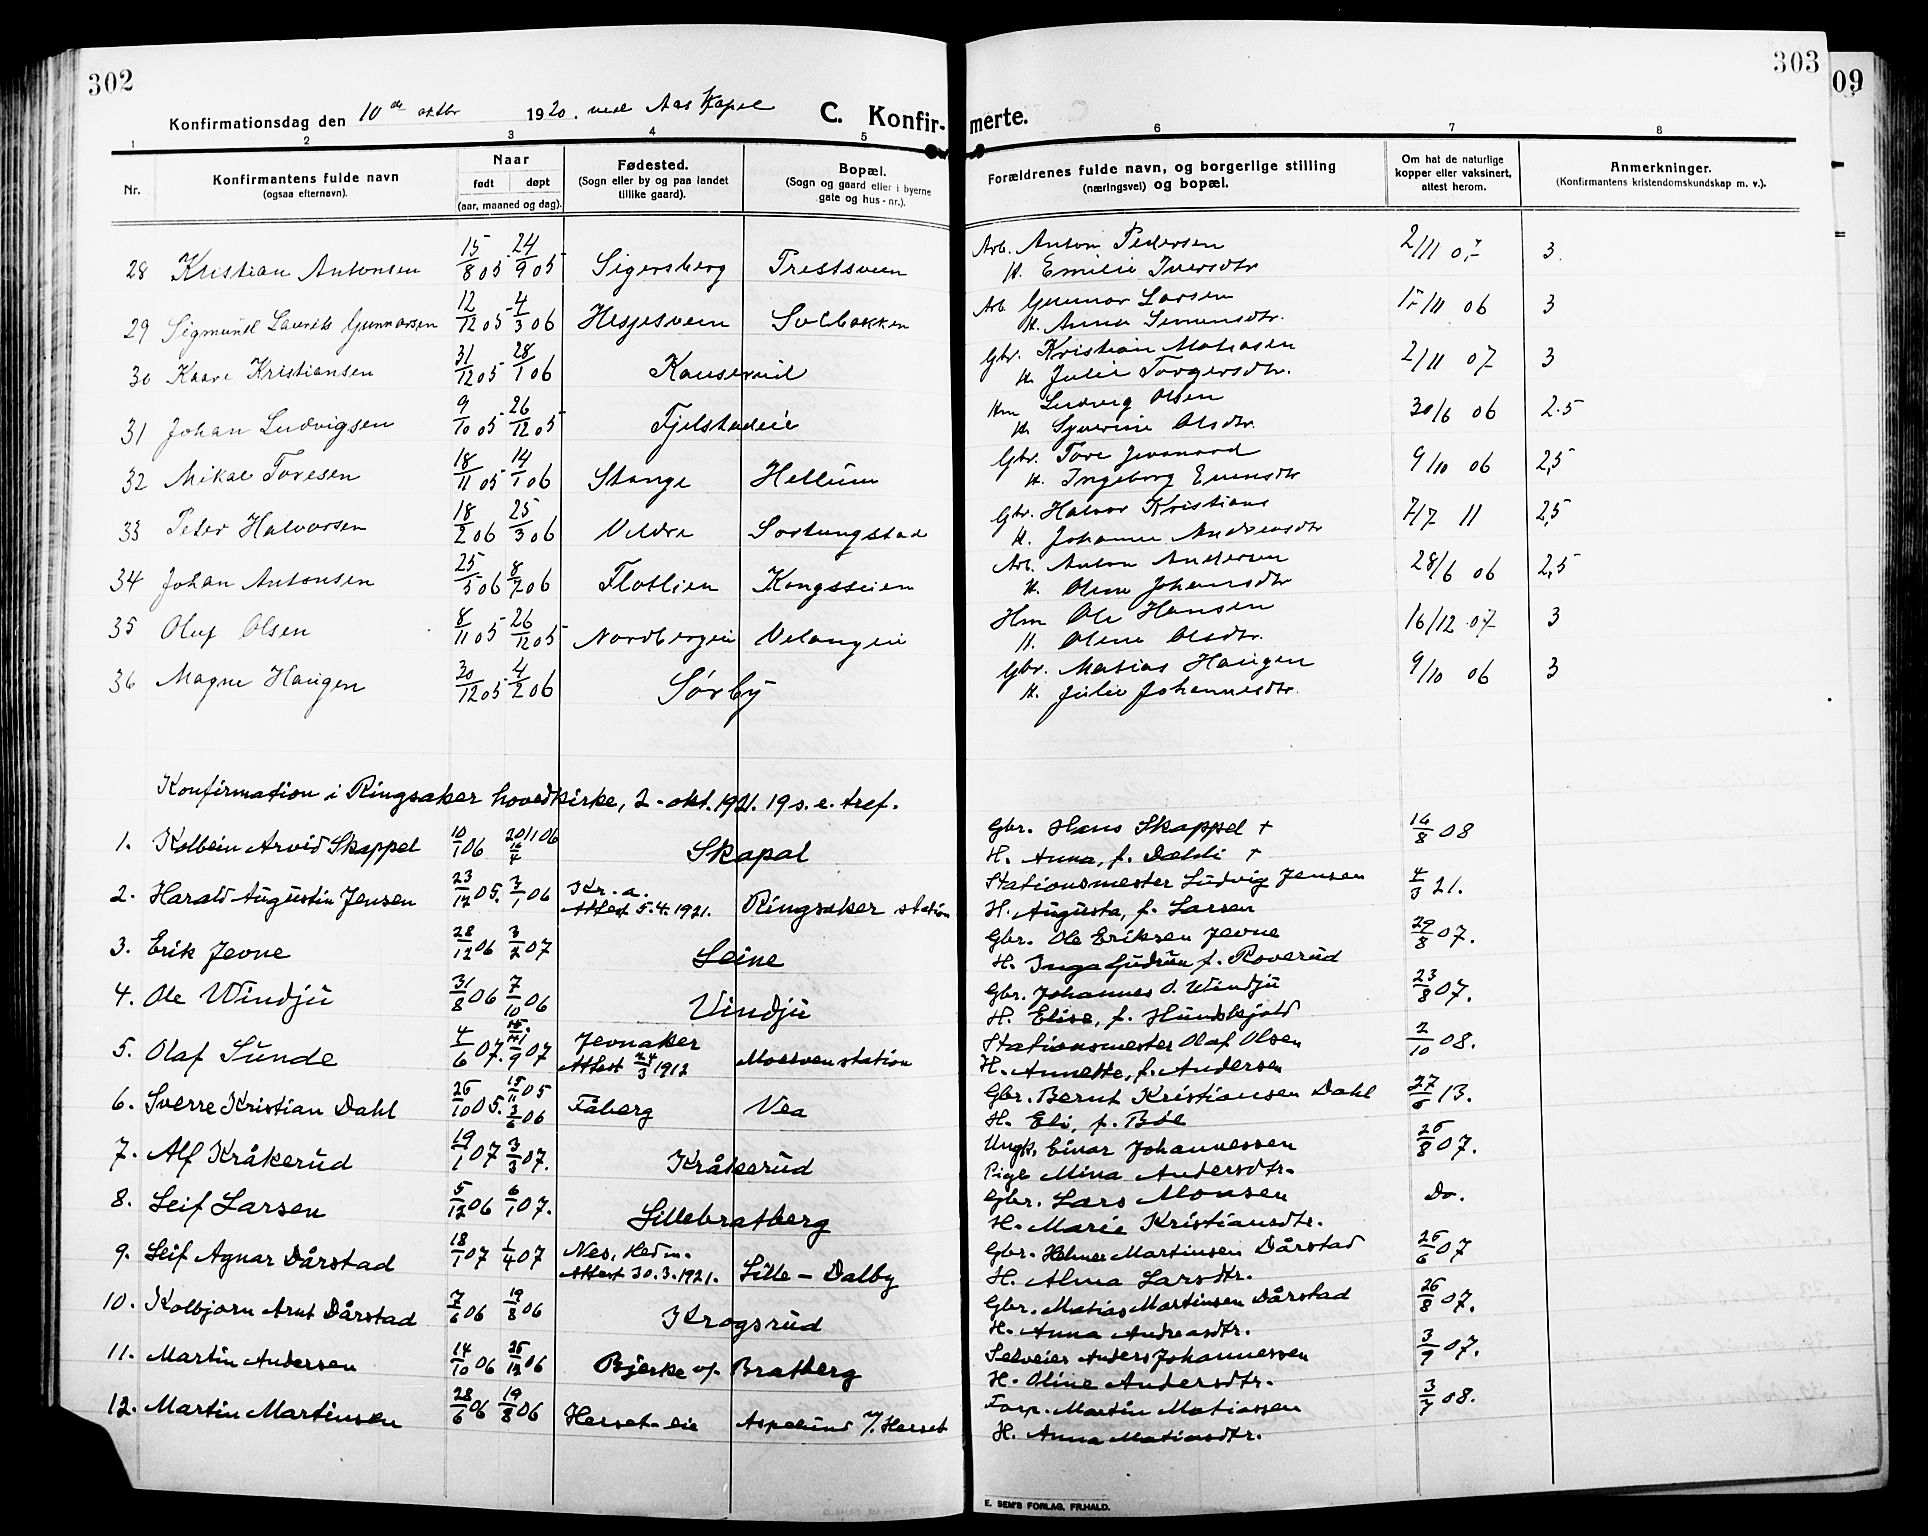 302
303
09
Konfirmationsdag den 10de oktbr 1920. ved Aas Kapel
C. Konfir- merte.
1 2 3 4 5 6 7 8
Nr.
Konfirmantens fulde navn
(ogsaa efternavn).
Naar
født døpt
(aar, maaned og dag).
Fødested.
(Sogn eller by og paa landet
tillike gaard).
Bopæl.
(Sogn og gaard eller i byerne
gate og hus-nr.).
Forældrenes fulde navn, og borgerlige stilling
(næringsvei) og bopæl.
Om hat de naturlige
kopper eller vaksinert,
attest herom.
Anmerkninger.
(Konfirmantens kristendomskundskap m. v.).
28 Kristian Antonsen 15/8 05 24/9 05 Sigersberg Trestsveen Arb. Anton Pedersen 2/11 07 3.
H. Emilie Iversdtr
29 Sigmund Laurits Gunnarsen 12/12 05 4/3 06 Hesjesveen Solbakken Arb. Gunnar Larsen 15/11 06 3
H. Anna Simensdtr.
30 Kaare Kristiansen 31/12 05 28/1 06 Kauserud Gbr. Kristian Matiasen 2/11 07 3
H. Julie Torgersdtr.
31 Johan Ludvigsen 9/10 05 26/12 05 Fjelstadeie Hm Ludvig Olsen 30/6 06 2.5
H. Syverine Olsdtr.
32 Mikal Toresen 18/11 05 14/1 06 Stange Hellum Gbr. Tore Jevanord 9/10 06 2,5
H. Ingeborg Evensdtr
33 Peter Halvorsen 18/2 06 25/3 06 Veldre Sortungstad Gbr. Halvor Kristians 7/7 11 2,5
H. Johanne Andreasdtr
34 Johan Antonsen 25/5 06 8/7 06 Flotlien Kongsveien Arb. Anton Andersen 28/6 06 2,5
H. Oline Johansdtr
35 Oluf Olsen 8/11 05 26/12 05 Nordbergeie Velangeie Hm Ole Hansen 16/12 07 3
H. Oline Olsdtr.
36 Magne Haugen 30/12 05 4/2 06 Sørby Gbr. Matias Haugen 9/10 06 3
H. Julie Johannesdtr.
Konfirmation i Ringsaker hovedkirke, 2. okt. 1921. 19 s. e. tref.
1. Kolbein Arvid Skappel 10/1 06 20/1 06 Skapal Gbr. Hans Skappel + 16/8 08
16/4 H. Anna, f. Dæhli +
2. Harald Augustin Jensen 23/12 05. 3/1 06 Kr.a. Ringsaker station Stationsmester Ludvig Jensen 4/3 21.
Attest 5.4.1921. H. Augusta, f. Larsen
3. Erik Jevne 28/12 06 3/2 07 Seine Gbr. Ole Eriksen Jevne 29/8 07.
H. Inga Gudrun f. Roverud
4. Ole Windju 31/8 06 7/10 06 Vindju Gbr. Johannes O. Windju 23/8 07.
H. Elise, f. Hundskjold
5. Olaf Sunde 4/6 07. 15/9 07 Jevnaker Moelven station Stationsmester Olaf Olsen 2/10 08.
Attest 24/3 1912 H. Annette, f. Andersen
6. Sverre Kristian Dahl 26/10 05. 15/11 05 Fåberg Vea Gbr. Bernt Kristiansen Dahl 27/6 13.
3/6 06 H. Eli, f. Bøe
7. Alf Kråkerud 19/1 07 3/3 07. Kråkerud Ungk. Einar Johannessen 26/8 07.
Pige Mina Andersdtr.
8. Leif Larsen 5/12 06 6/1 07. Lillebratberg Gbr. Lars Monsen Do.
H. Marie Kristiansdtr.
9. Leif Agnar Dårstad 18/1 07 1/4 07 Nes, Hedm. Lille-Dalby Gbr. Helmer Martinsen Dårstad 26/6 07
Attest 30.3.1921. H. Alma Larsdtr.
10. Kolbjørn Arnt Dårstad 7/6 06 19/8 06 Krogsrud Gbr. Matias Martinsen Dårstad 26/8 07.
H. Anna Andreasdtr.
11. Martin Andersen 14/10 06 26/12 06 Bjerke v/ Bratberg Selveier Anders Johannessen 3/9 07.
H. Oline Andersdtr.
12. Martin Martinsen 28/6 06 19/8 06 Herset-eie Aspelund u/ Herset Forp. Martin Matiassen 3/7 08.
H. Anna Matiasdtr.
E. SEM'S FORLAG, FR.HALD.